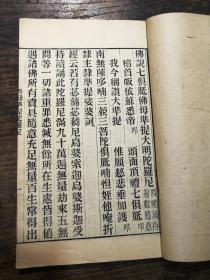 傳說七俱胝佛母準提大明陀羅尼
稽首皈依蘇悉帝　頭面頂禮七俱胝
我今稱讚大準提　惟願慈悲垂加護
南無颯哆喃三藐三菩陀俱胝喃怛姪他唵折
隸主隸準提娑婆訶
經云若有苾芻苾芻尼烏婆索迦烏婆斯迦受
持讀誦此陀羅尼滿九十萬遍無量劫來五無
間等一切諸重罪悉滅無餘所在生處皆得值
遇諸佛所有資具隨意充足無量百生常得出